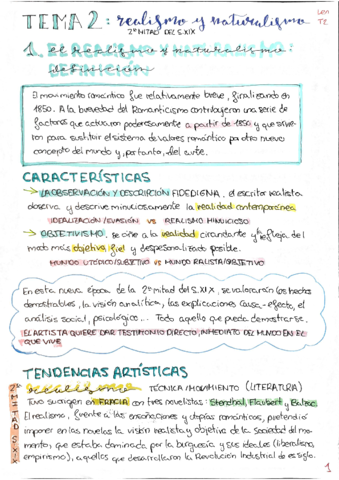 TEMA 2: realismo y naturalismo
Len
T2
2ª MITAD DEL S.XIX
1. el Realismo y naturalismo:
DEFINICIÓN
El movimiento romántico fue relativamente breve, finalizando en
1850. A la brevedad del Romanticismo contribuyeron una serie de
factores que actuaron poderosamente a partir de 1850 y que sirvie-
ron para sustituir el sistema de valores romántico por otro nuevo
concepto del mundo y, por tanto, del arte.
CARACTERÍSTICAS
→ LA OBSERVACIÓN Y DESCRIPCIÓN FIDEDIGNA, el escritor realista
observa y describe minuciosamente la realidad contemporánea
IDEALIZACIÓN/EVASIÓN VS REALISMO MINUCIOSO
→ OBJETIVISMO, se ciñe a la realidad circundante y la refleja del
modo más objetivo, fiel y despersonalizado posible.
MUNDO UTÓPICO/SUBJETIVO VS MUNDO REALISTA/OBJETIVO
En esta nueva época de la 2ª mitad del S.XIX, se valorarán los hechos
demostrables, la visión analítica, las explicaciones causa-efecto, el
análisis social, psicológico... Todo aquello que pueda demostrarse.
EL ARTISTA QUIERE DAR TESTIMONIO DIRECTO, INMEDIATO DEL MUNDO EN EL
QUE VIVE
TENDENCIAS ARTÍSTICAS
2ª MITAD S.XIX
realismo TÉCNICA/MOVIMIENTO (LITERATURA)
Tuvo su origen en FRACIA con tres novelistas: Stendhal, Flaubert y Balzac.
El realismo, frente a las ensoñaciones y utopías románticas, pretendió
imponer en las novelas la visión realista y objetiva de la sociedad del mo-
mento, que estaba dominada por la burguesía y sus ideales (liberalismo,
empirismo), aquellos que desarrollaron la Revolución Industrial de ese siglo.
1